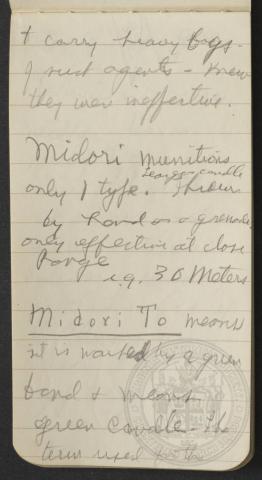 + carry heavy bags.
of such agents - knew
they were ineffective.
Midori munitions
larger candle
only 1 type. Thrown
by hand as a grenade
only effective at close
Range
e.g. 30 Meters
Midori To means
it is marked by a green
band & means
green candle - the
term used for the